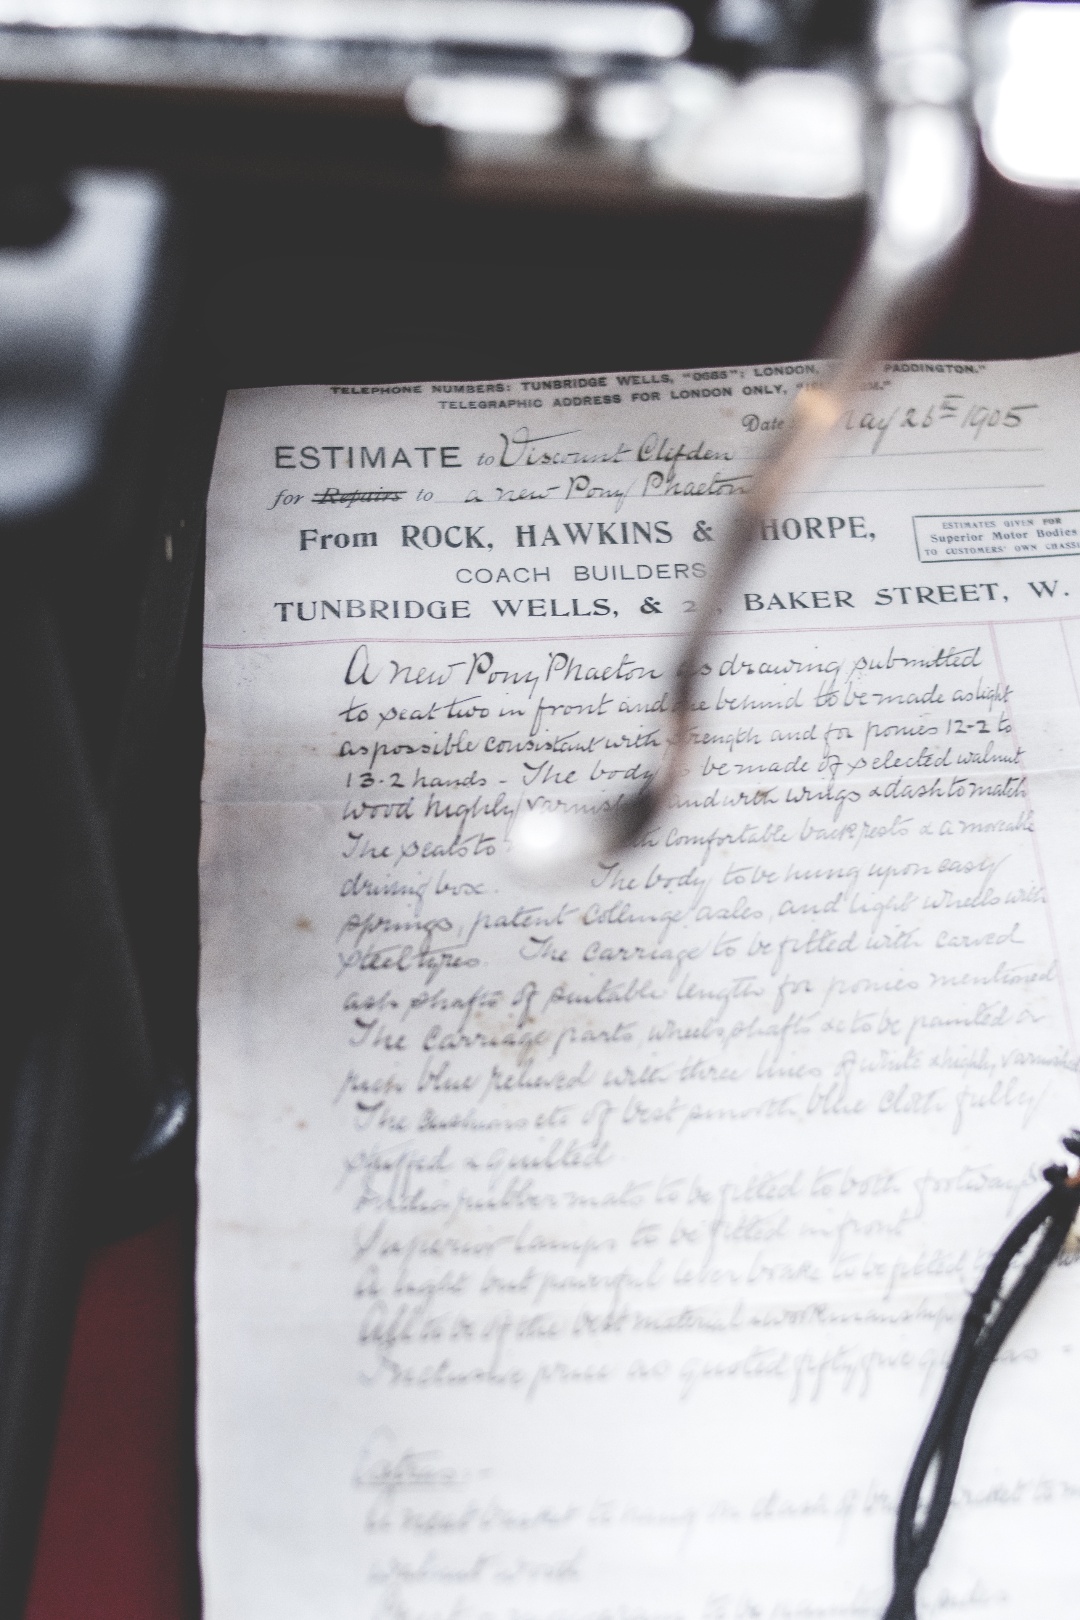 TELEPHONE NUMBERS: TUNBRIDGE WELLS, "0585"; LONDON, PADDINGTON."
TELEGRAPHIC ADDRESS FOR LONDON ONLY,
Date May 26th 1905
ESTIMATE to Viscount Clifden
for Repairs to a new Pony Phaeton
From ROCK, HAWKINS & THORPE,
ESTIMATES GIVEN FOR
Superior Motor Bodies
TO CUSTOMERS' OWN CHASSI
COACH BUILDERS
TUNBRIDGE WELLS, & BAKER STREET, W.
A new Pony Phaeton as drawing submitted
to seat two in front and one behind to be made as light
as possible consistant with strength and for ponies 12-2 to
13-2 hands - The body be made of selected walnut
wood highly varnished and with wings & dash to match
The seats to with comfortable back rests & a moveable
driving box. The body to be hung upon easy
springs, patent Collinge axles, and light wheels with
steel tyres. The carriage to be fitted with carved
ash shafts of suitable length for ponies mentioned
The carriage parts, wheels, shafts &c to be painted a
rich blue relieved with three lines of white & highly varnished
The cushions etc of best smooth blue cloth fully
stuffed & quilted
rubber mats to be fitted to both footways
Superior lamps to be fitted in front
A light but powerful lever brake to be fitted
All to be of the best material & workmanship
Inclusive price as quoted fifty five
Extras:-
A neat basket to hang on dash of
walnut wood